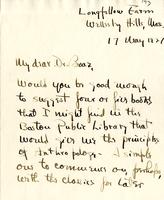 Longfellow Farm
Wellesley Hills, Mass.
17 May
My dear Dr. Boaz,
Would you be good enough
to suggest four or five books
that I might find in the
Boston Public Library that
would give me the principles
of Anthropology.
with the classics for